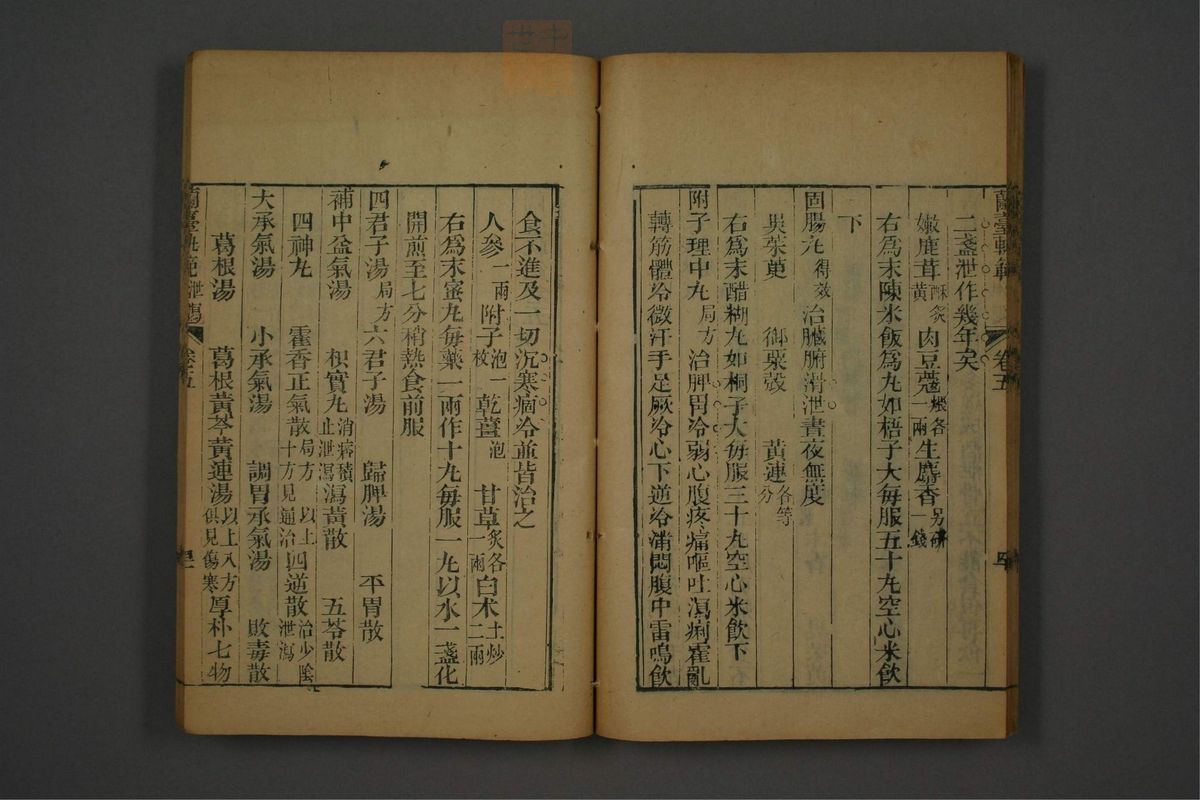 蘭臺軌範
卷五
二盞泄作幾年矣
嫩鹿茸酥炙黃 肉豆蔻煨各一兩 生麝香另研一錢
右爲末陳米飯爲丸如梧子大每服五十丸空心米飲
下
固腸丸得效 治臟腑滑泄晝夜無度
吳茱萸 御粟殼 黃連各等分
右爲末醋糊丸如桐子大每服三十丸空心米飲下
附子理中丸局方 治脾胃冷弱心腹疼痛嘔吐瀉痢霍亂
轉筋體冷微汗手足厥冷心下逆冷滿悶腹中雷鳴飲
食不進及一切沉寒痼冷並皆治之
人參一兩 附子泡一枚 乾薑泡 甘草炙各一兩 白术土炒二兩
右爲末蜜丸每藥一兩作十丸每服一丸以水一盞化
開煎至七分稍熱食前服
四君子湯局方 六君子湯 歸脾湯 平胃散
補中益氣湯 枳實丸消痞積止泄瀉 瀉黃散 五苓散
四神丸 霍香正氣散局方以上十方見通治 四逆散治少陰泄瀉
大承氣湯 小承氣湯 調胃承氣湯 敗毒散
葛根湯 葛根黃芩黃連湯以上八方俱見傷寒 厚朴七物
蘭臺軌範 泄瀉
卷五